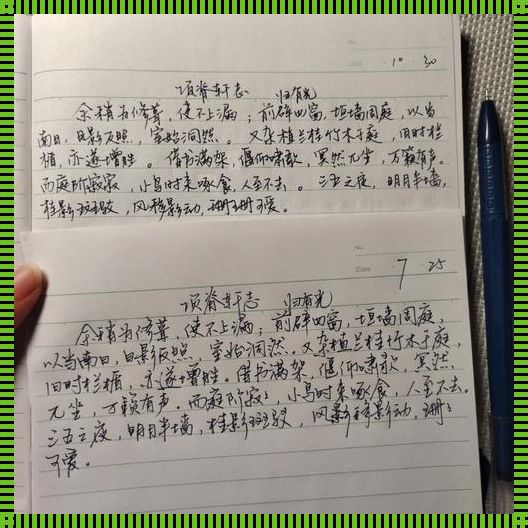 No.
Date · 10 · 30
项脊轩志 归有光
余稍为修葺，使不上漏；前辟四窗，垣墙周庭，以当
南日，日影反照，室始洞然。又杂植兰桂竹木于庭，旧时栏
楯，亦遂增胜。借书满架，偃仰啸歌，冥然兀坐，万籁有声。
而庭阶寂寂，小鸟时来啄食，人至不去。三五之夜，明月半墙，
桂影斑驳，风移影动，珊珊可爱。
No.
Date · 7 · 25
项脊轩志 归有光
余稍为修葺，使不上漏；前辟四窗，垣墙周庭，
以当南日，日影反照，室始洞然。又杂植兰桂竹木于庭，
旧时栏楯，亦遂增胜。借书满架，偃仰啸歌，冥然
兀坐，万籁有声。而庭阶寂寂，小鸟时来啄食，人至不去。
三五之夜，明月半墙，桂影斑驳，风移影动，珊珊
可爱。